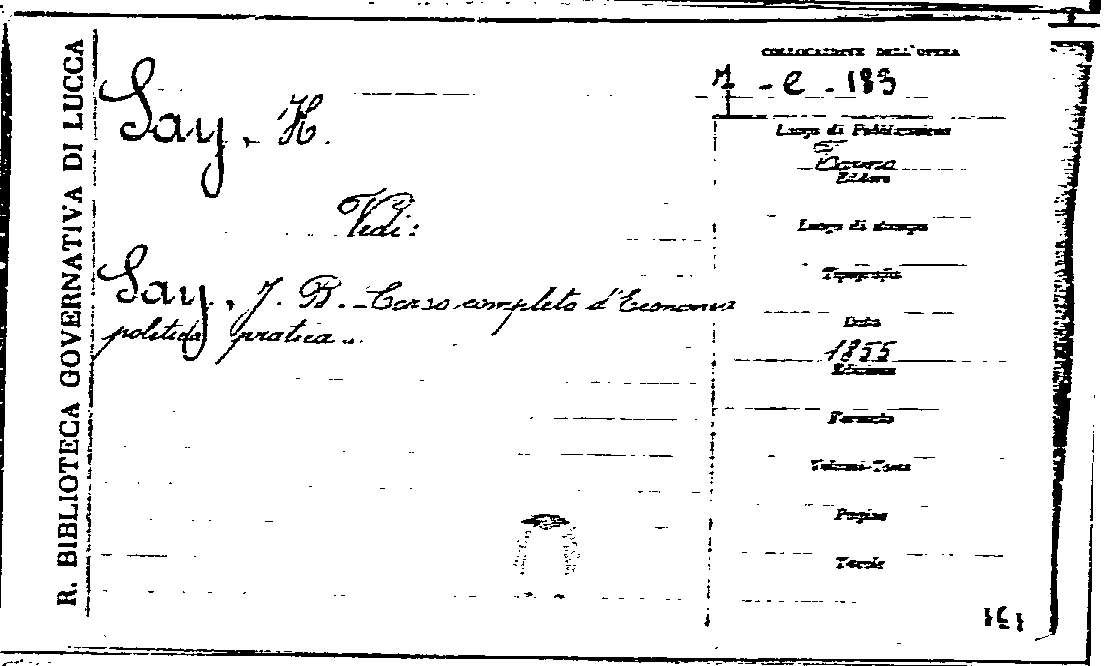 R. BIBLIOTECA GOVERNATIVA DI LUCCA
Say, H.
Vedi:
Say, J. B. - Corso completo d'Economia
politica pratica..
COLLOCAZIONE DELL'OPERA
- e - 183
Luogo di Pubblicazione
Torino
Editore
Luogo di stampa
Tipografia
Data
1855
Edizione
Formato
Volumi-Tomi
Pagine
Tavole